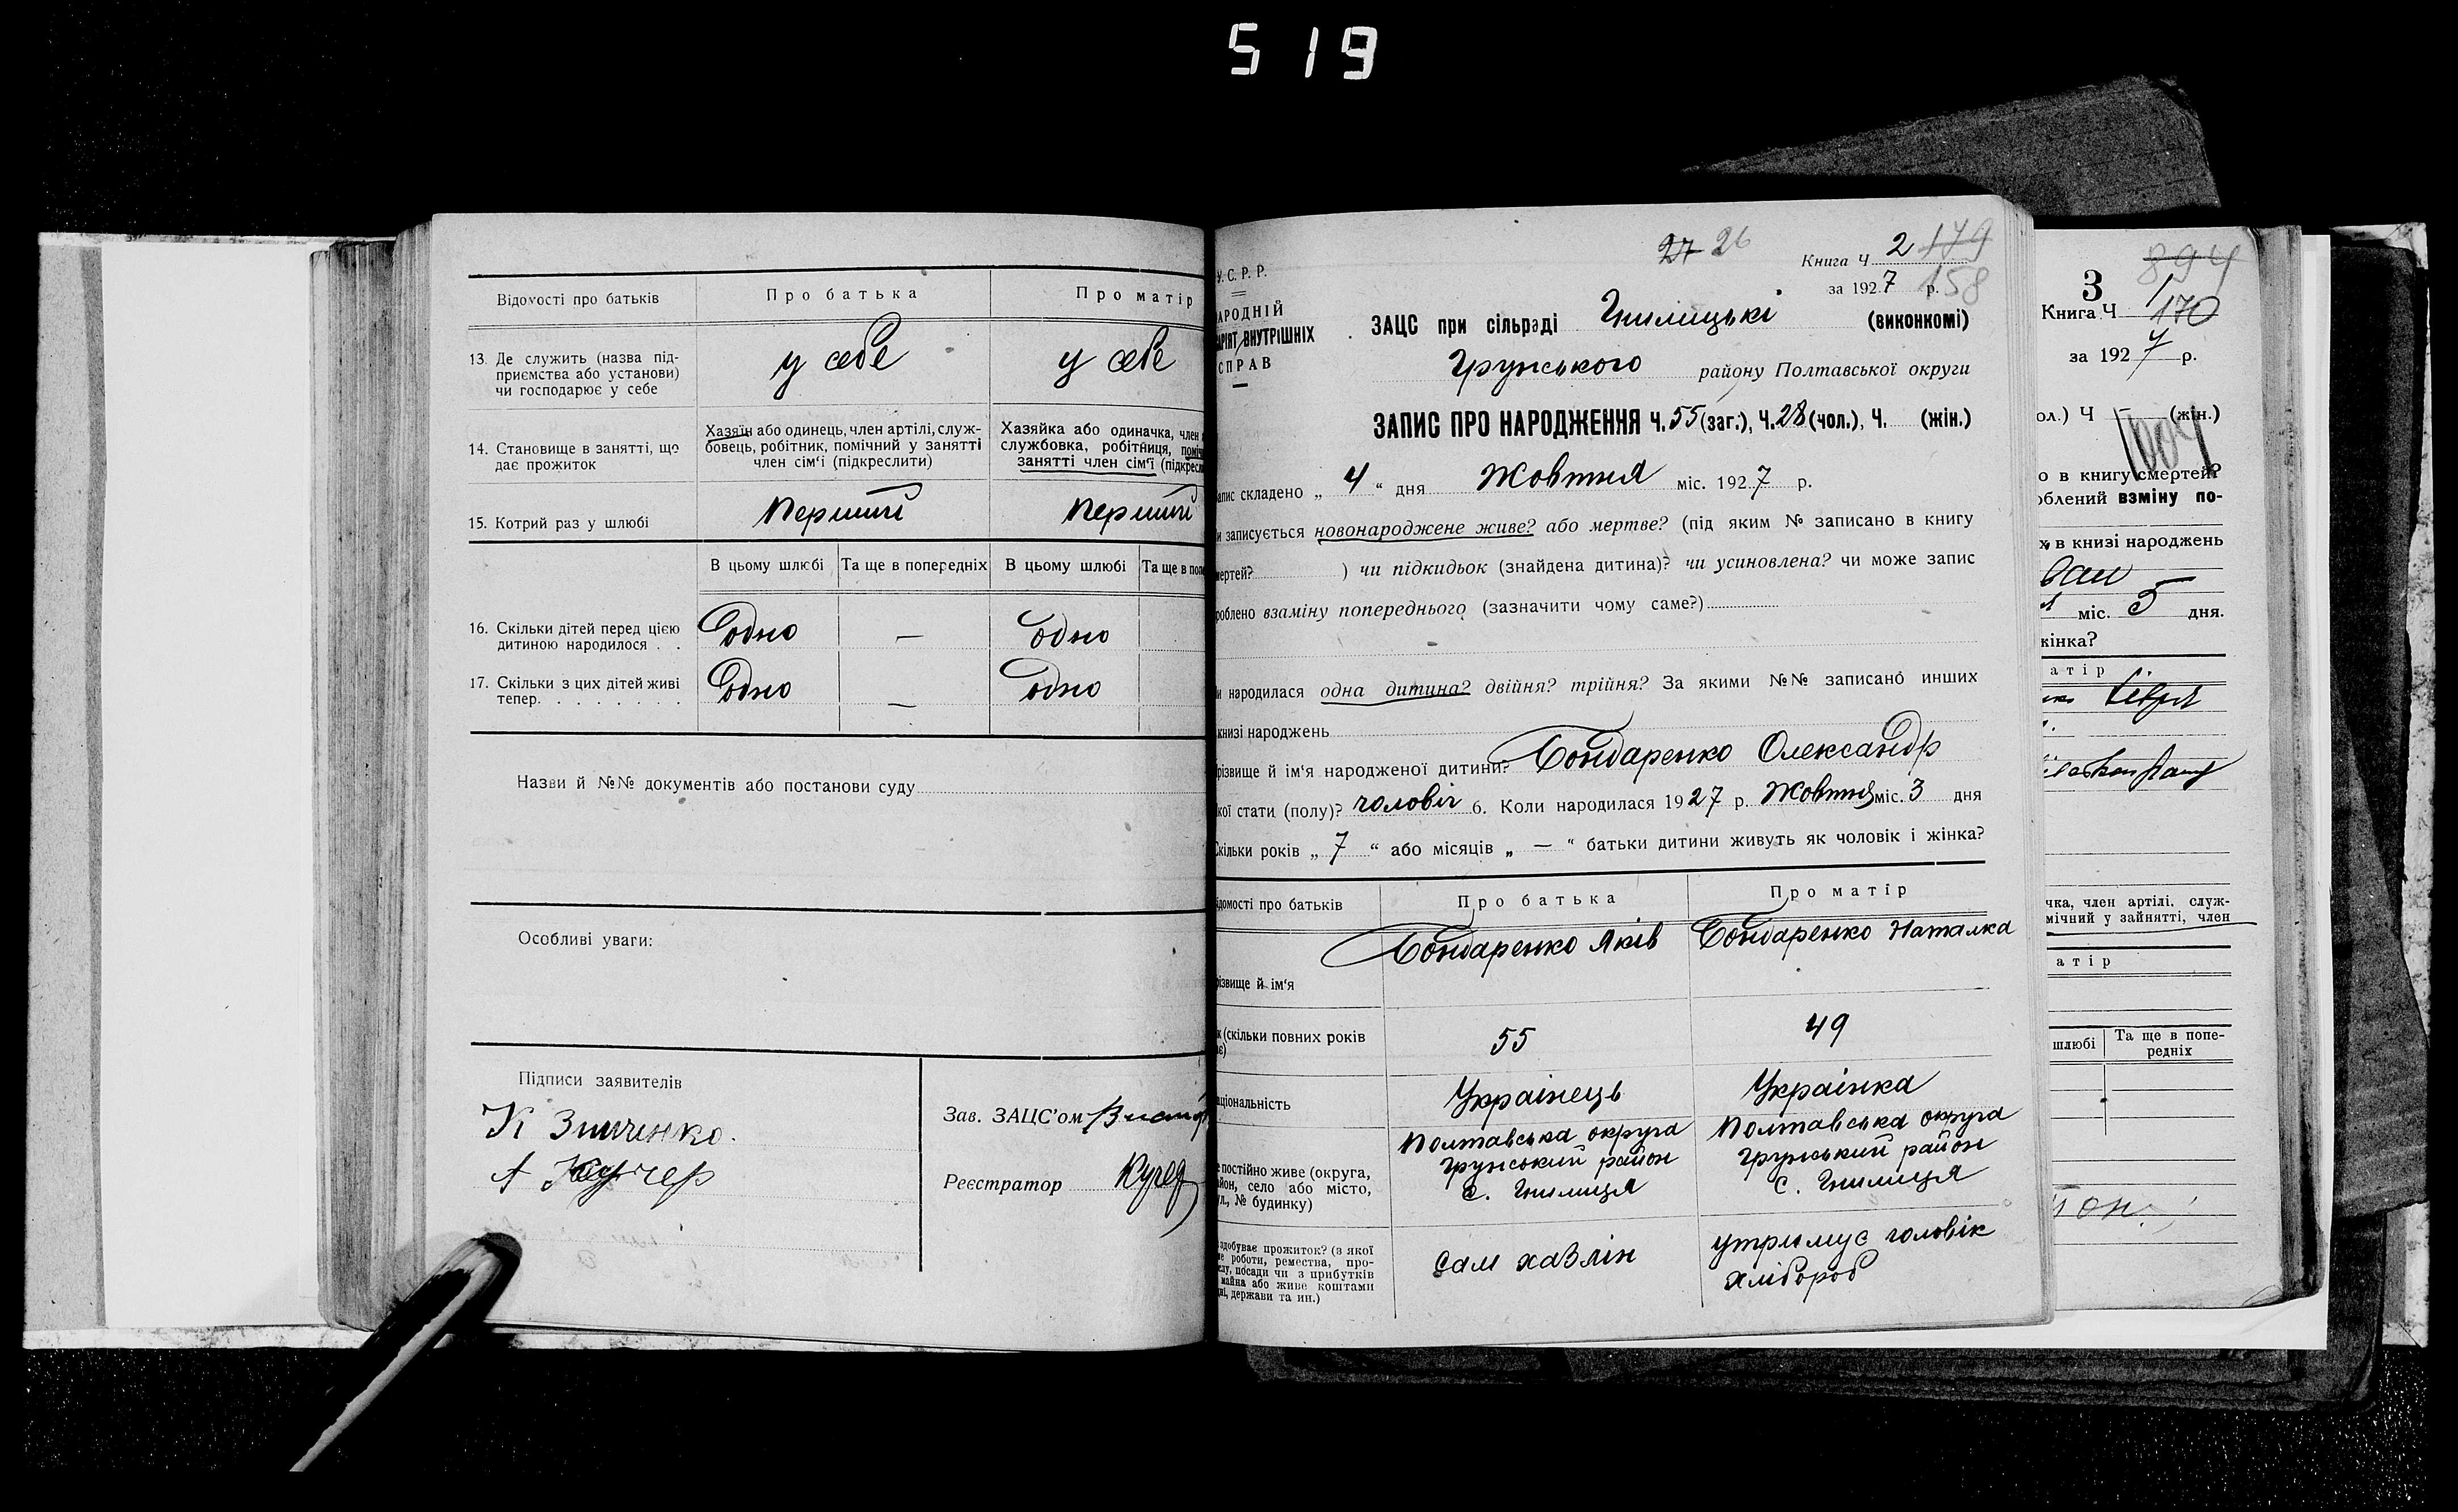 519
Відомості про батьків
Про батька
Про матір
13. Де служить (назва під-
приємства або установи)
чи господарює у себе
у себе
у себе
14. Становище в занятті, що
дає прожиток
Хазяїн або одинець, член артілі, служ-
бовець, робітник, помічний у занятті
член сім'ї (підкреслити)
Хазяйка або одиначка, член
службовка, робітниця, поміч
занятті член сім'ї (підкресл
15. Котрий раз у шлюбі
Перший
Перший
В цьому шлюбі
Та ще в попередніх
В цьому шлюбі
Та ще в поп
16. Скільки дітей перед цією
дитиною народилося . .
Одно
—
Одно
17. Скільки з цих дітей живі
тепер. . . . . . . .
Одно
—
Одно
Назви й №№ документів або постанови суду
Особливі уваги:
Підписи заявителів
К Зинченко.
А Кучер
Зав. ЗАЦС'ом
Реєстратор Кучер
27 26
Книга Ч 2 179
за 1927 р. 158
У.С.Р.Р.
АРОДНІЙ
АРІЯТ ВНУТРІШНІХ
СПРАВ
ЗАЦС при сільраді Гнилицькі (виконкомі)
Грунського району Полтавської округи
ЗАПИС ПРО НАРОДЖЕННЯ Ч. 55 (заг.), Ч. 28 (чол.), Ч. (жін.)
апис складено „ 4 “ дня Жовтня міс. 1927 р.
и записується новонароджене живе? або мертве? (під яким № записано в книгу
мертей? ) чи підкидьок (знайдена дитина)? чи усиновлена? чи може запис
роблено взаміну попереднього (зазначити чому саме?)
и народилася одна дитина? двійня? трійня? За якими №№ записано инших
книзі народжень
різвище й ім'я народженої дитини? Бондаренко Олександр
кої стати (полу)? чоловіч 6. Коли народилася 1927 р. Жовтня міс. 3 дня
Скільки років „ 7 “ або місяців „ — “ батьки дитини живуть як чоловік і жінка?
ідомості про батьків
Про батька
Про матір
різвище й ім'я
Бондаренко Яків
Бондаренко Наталка
к (скільки повних років
є)
55
49
ціональність
Українець
Українка
е постійно живе (округа,
йон, село або місто,
ул., № будинку)
Полтавська округа
Грунський район
с. Гнилиця
Полтавська округа
Грунський район
с. Гнилиця
здобуває прожиток? (з якої
е роботи, ремества, про-
еду, посади чи з прибутків
майна або живе коштами
ні, держави та ин.)
Сам хазяін
утримує чоловік
хлібороб
3
894
Книга Ч 1
170
за 1927 р.
ол.) Ч — (жін.)
о в книгу смертей?
облений взміну по-
х, в книзі народжень
міс. 5 дня.
жінка?
атір
чка, член артілі, служ-
мічний у зайнятті, член
атір
шлюбі
Та ще в попе-
редніх